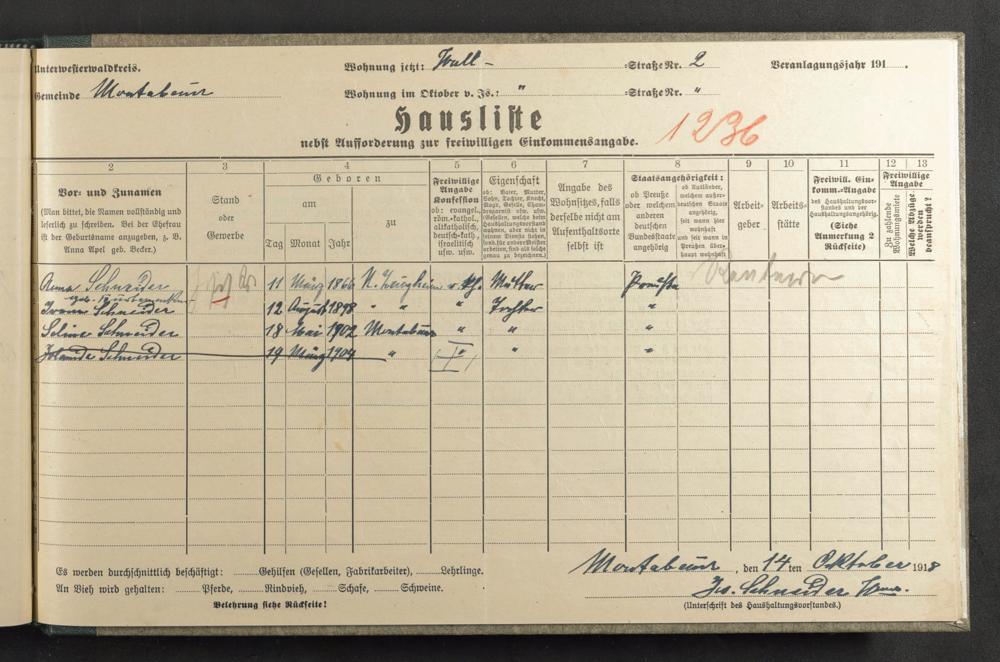 Unterwesterwaldkreis. Wohnung jetzt: Wall- Straße Nr. 2 Veranlagungsjahr 191 .
Gemeinde Montabaur Wohnung im Oktober v. Js.: " Straße Nr. "
Hausliste 1236
nebst Aufforderung zur freiwilligen Einkommensangabe.
2 3 4 5 6 7 8 9 10 11 12 13
Vor- und Zunamen
(Man bittet, die Namen vollständig und
leserlich zu schreiben. Bei der Ehefrau
ist der Geburtsname anzugeben, z. B.
Anna Apel geb. Becker.)
Stand
oder
Gewerbe
Geboren
am zu
Tag Monat Jahr
Freiwillige
Angabe
Konfession
ob: evangel.,
röm.-kathol.,
altkatholisch,
deutsch-kath.,
israelitisch
usw. usw.
Eigenschaft
ob: Vater, Mutter,
Sohn, Tochter, Knecht,
Magd, Geselle,
Angabe des
Wohnsitzes, falls
derselbe nicht am
Aufenthaltsorte
selbst ist
Staatsangehörigkeit:
ob Preuße
oder welchem
anderen
deutschen
Bundesstaate
angehörig
ob Ausländer,
welchem außer-
deutschen Staate
angehörig,
seit wann hier
wohnhaft
und seit wann in
Preußen über-
haupt wohnhaft
Arbeit-
geber
Arbeits-
stätte
Freiwill. Ein-
komm.-Angabe
des Haushaltungsvor-
standes und der
Haushaltungsangehörig.
(Siehe
Anmerkung 2
Rückseite)
Freiwillige
Angabe
Zu zahlende
Wohnungsmiete
Welche Abzüge
werden
beansprucht?
Anna Schneider 11 März 1866 Mutter Preußin Rentnerin
geb.
Schneider 12 August 1898 " " " Tochter "
Selma Schneider 18 Mai 1902 Montabaur " " "
Jolanda Schneider 19 März 1904 " " " "
Es werden durchschnittlich beschäftigt: Gehilfen (Gesellen, Fabrikarbeiter), Lehrlinge.
An Vieh wird gehalten: Pferde, Rindvieh, Schafe, Schweine.
Belehrung siehe Rückseite!
Montabaur, den 14ten Oktober 1918
Schneider Wwe.
(Unterschrift des Haushaltungsvorstandes.)